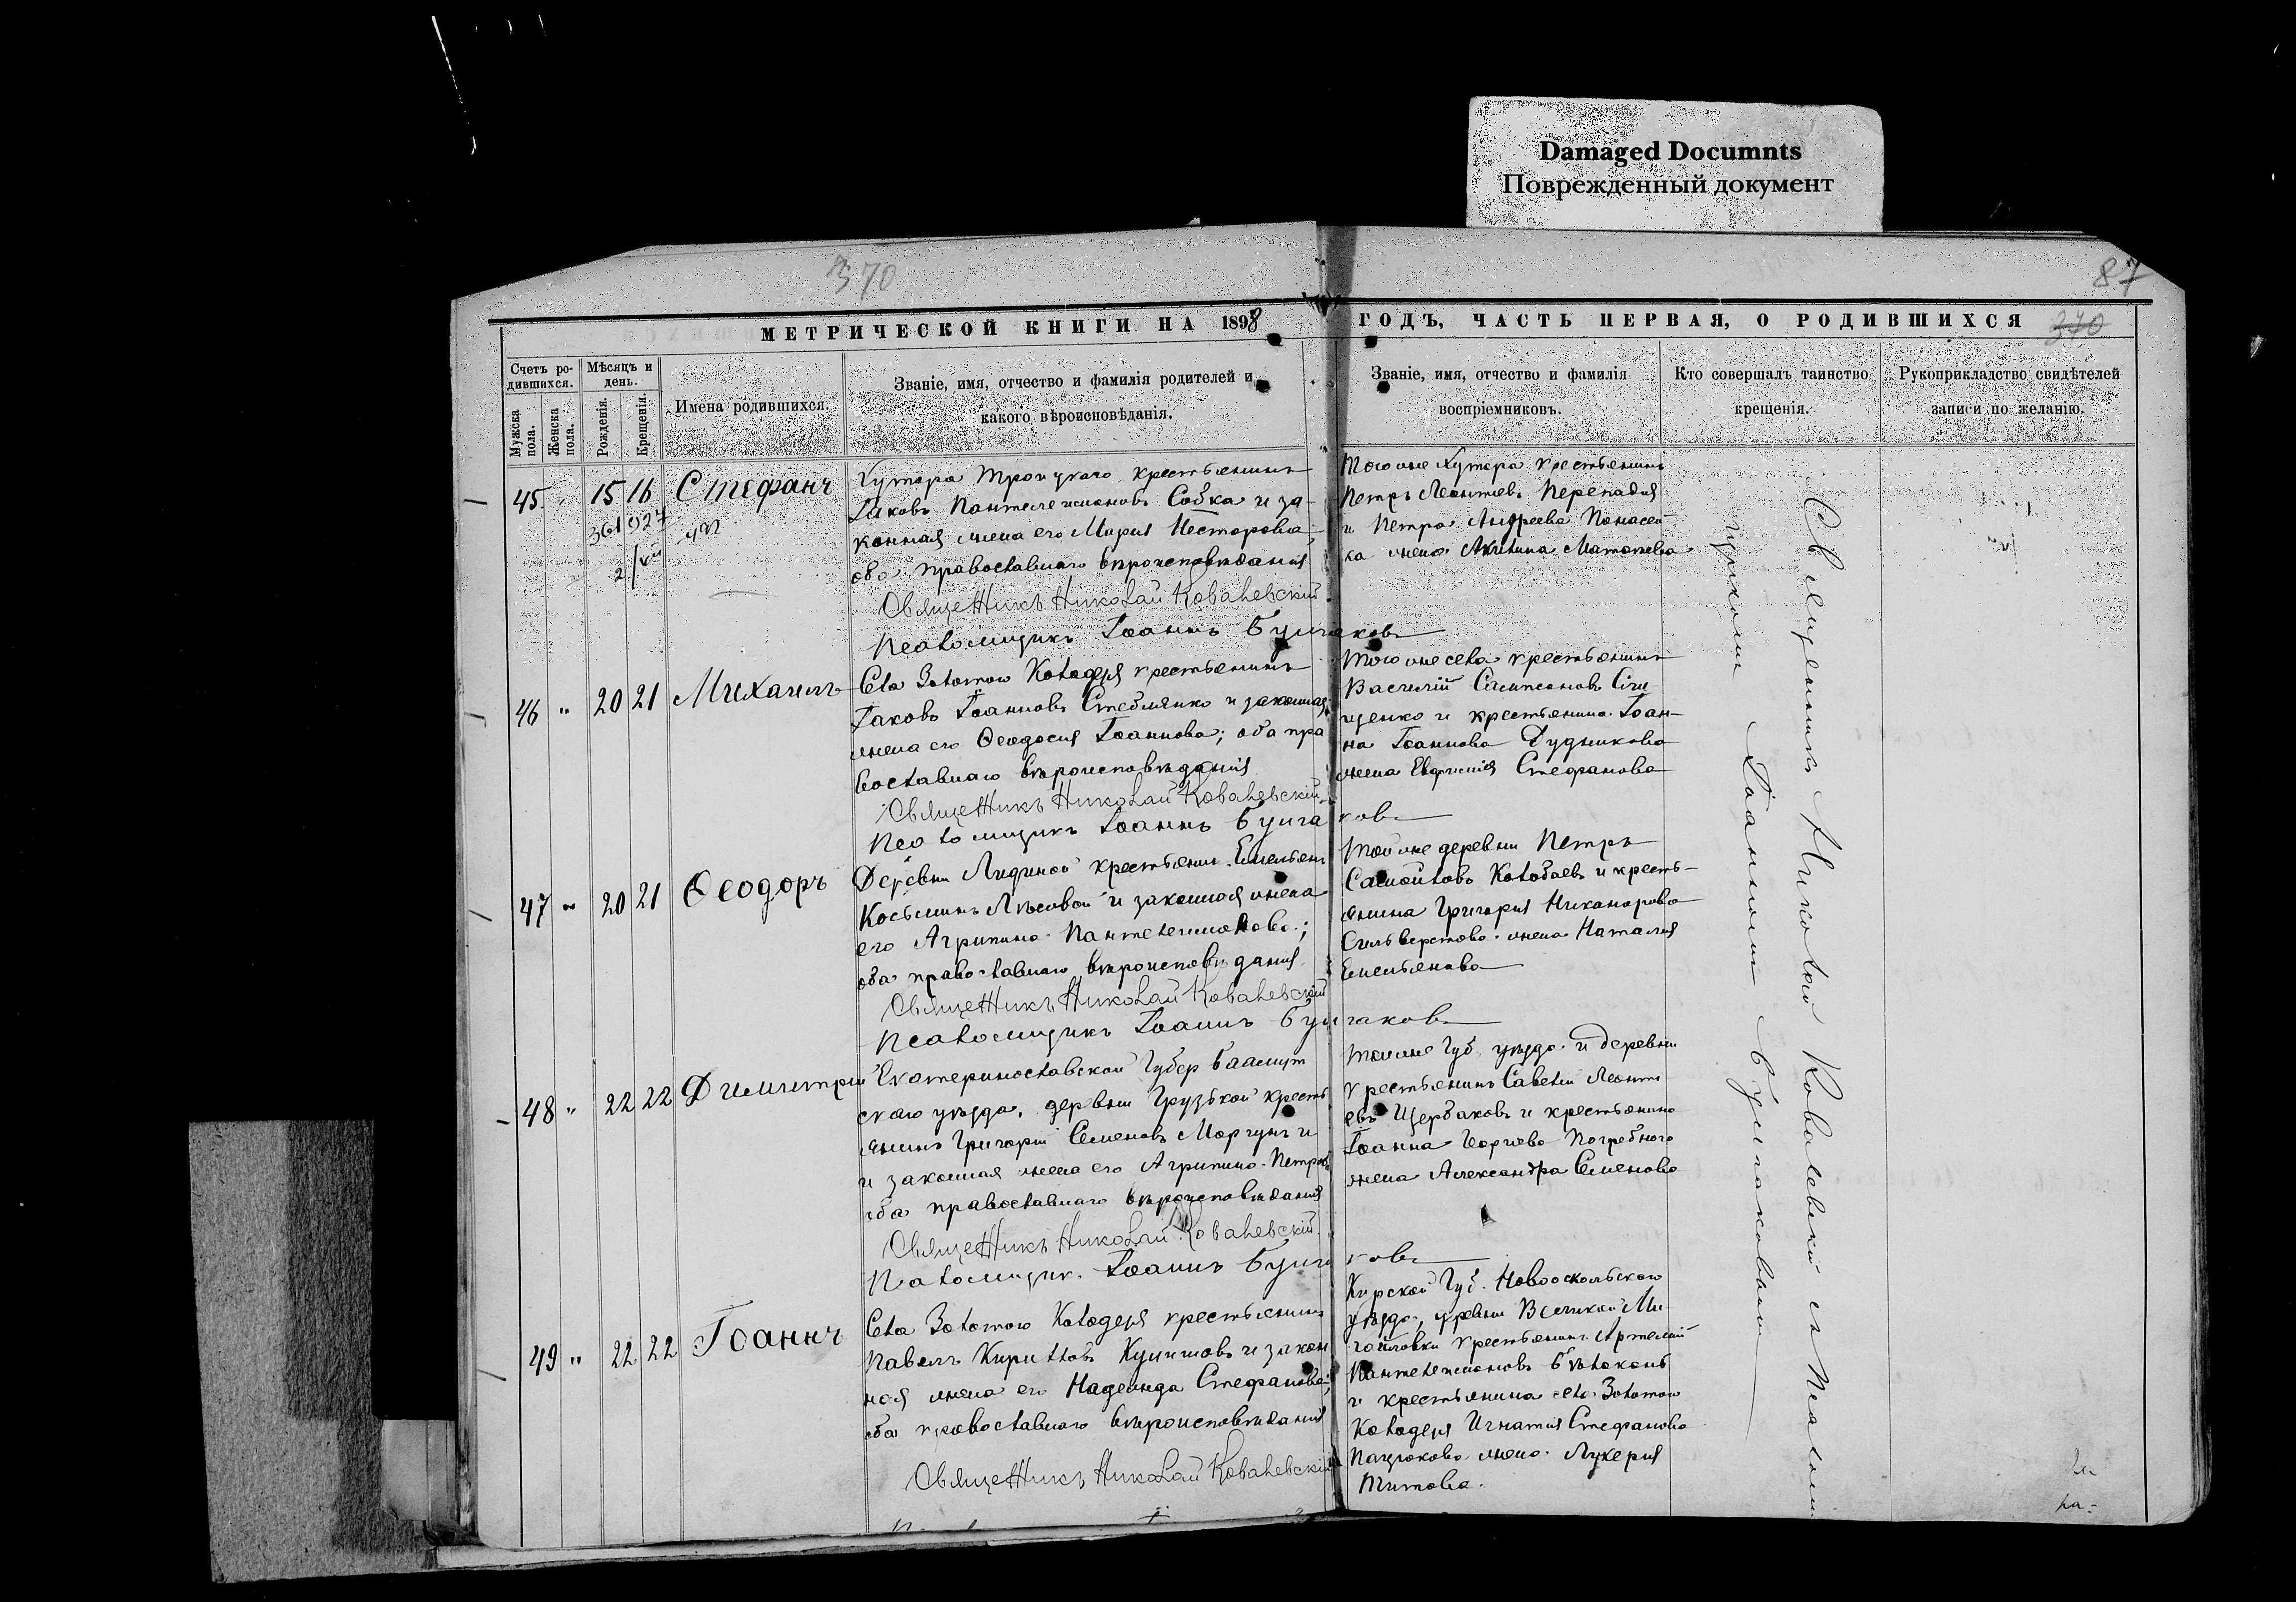 Damaged Documnts
Поврежденный документ
370
87
МЕТРИЧЕСКОЙ КНИГИ НА 1898
ГОДЪ, ЧАСТЬ ПЕРВАЯ, О РОДИВШИХСЯ
370
Счетъ ро-
дившихся.
Мужска
пола.
Женска
пола.
Мѣсяцъ и
день.
Рожденія.
Крещенія.
Имена родившихся.
Званіе, имя, отчество и фамилія родителей и
какого вѣроисповѣданія.
Званіе, имя, отчество и фамилія
воспріемниковъ.
Кто совершалъ таинство
крещенія.
Рукоприкладство свидѣтелей
записи по желанію.
45 " 15 16 Стефанъ
Хутора Троицкаго крестьянинъ
Іаковъ Пантелеимоновъ Собка и за-
конная жена его Марія Несторова;
оба православнаго вѣроисповѣданія
Священникъ Николай Ковалевскій
Псаломщикъ Іоаннъ Булгаковъ
Того же Хутора крестьянинъ
Петръ Леонтіевъ Перепадя
и Петра Андреева Панасен
ка жена Акилина Матвѣева
46 " 20 21 Михаилъ
Села Золотого Колодезя крестьянинъ
Іаковъ Іоанновъ Стеблянко и законная
жена его Ѳеодосія Іоаннова; оба пра
вославнаго вѣроисповѣданія
Священникъ Николай Ковалевскій
Псаломщикъ Іоаннъ Булгаковъ
Того же села крестьянинъ
Василій Симеоновъ
щенко и крестьянина Іоан-
на Іоаннова Дудникова
жена Евфимія Стефанова
47 " 20 21 Ѳеодоръ
Деревни Лидиной крестьянин. Емельянъ
Косьминъ Лѣсовой и законная жена
его Агрипина Пантелеимонова;
оба православнаго вѣроисповѣданія
Священникъ Николай Ковалевскій
Псаломщикъ Іоаннъ Булгаковъ
Той же деревни Петръ
Самойловъ Колобаевъ и кресть-
янина Григорія Никанорова
Сильверстова жена Наталія
Емельянова
48 " 22 22 Димитрій
Екатеринославской Губер Бахмут
скаго уѣзда, деревни Грузской кресть
янинъ Григорій Семеновъ Моргунъ и
и законная жена его Агрипина Петров
оба православнаго вѣроисповѣданія
Священникъ Николай Ковалевскій
Псаломщик. Іоаннъ Булгаковъ
Той же Губ уѣзда и деревни
крестьянинъ Савелій Леонті
евъ Щербаковъ и крестьянина
Іоанна Георгіева Погребного
жена Александра Семенова
49 " 22 22 Іоаннъ
Села Золотого Колодезя крестьянинъ
Павелъ Кирилловъ и закон
ная жена его Надежда Стефанова;
оба православнаго вѣроисповѣданія
Священникъ Николай Ковалевскій
Курской Губ. Новооскольскаго
уѣзда, деревни Великой Ми
хайловки крестьянинъ Артемій
Пантелеимоновъ Бѣлоконь
и крестьянина села Золотого
Колодезя Игнатія Стефанова
Пацюкова жена Лукерія
Титова.
Священникъ Николай Ковалевскій съ Псалом
щикомъ Іоанномъ Булгаковымъ